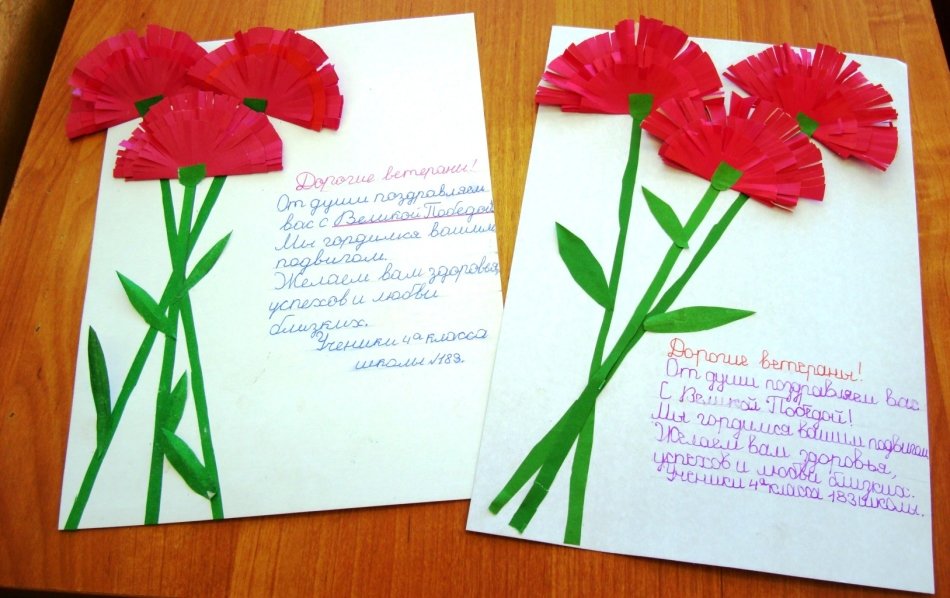 Дорогие ветераны!
От души поздравляем
вас с Великой Победой.
Мы гордимся вашим
подвигом.
Желаем вам здоровья,
успехов и любви
близких.
Ученики 4а класса
школы №183.
Дорогие ветераны!
От души поздравляем вас
С Великой Победой!
Мы гордимся вашим подвигом
Желаем вам здоровья,
успехов и любви близких.
Ученики 4а класса 183 школы.